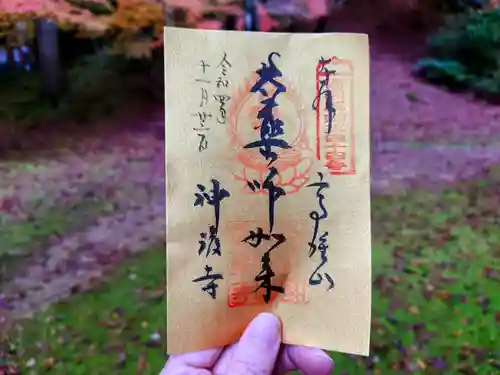 奉拝
高雄山
大薬師如来
神護寺
令和四年
十一月廿二日